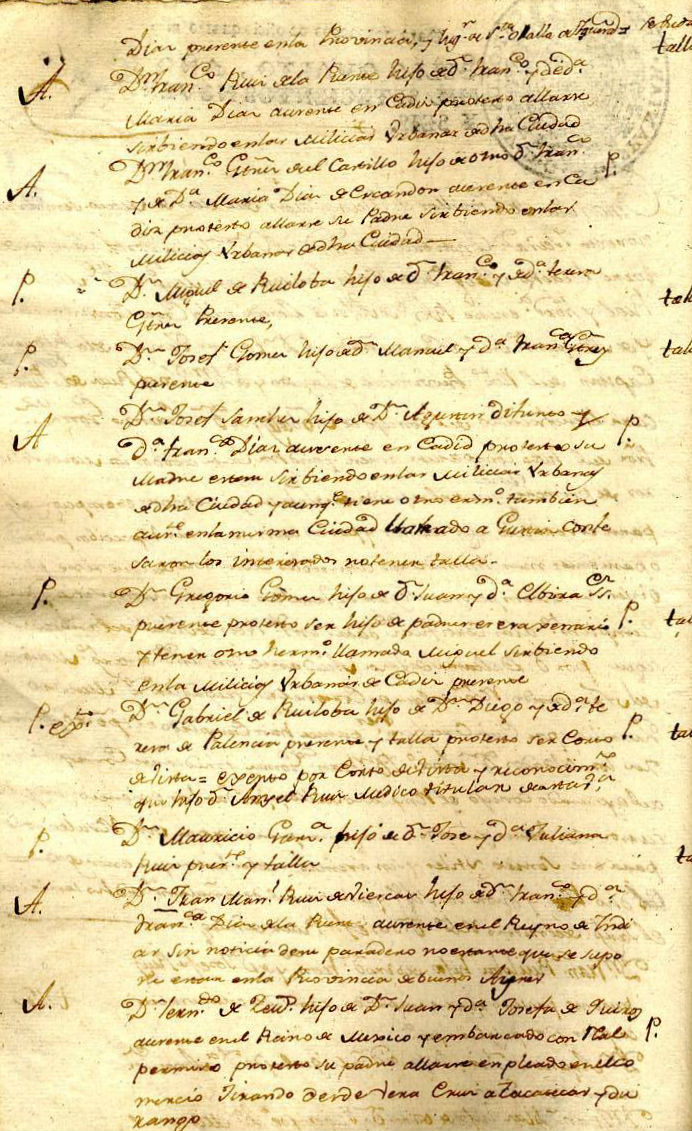 Diaz presente en la Provincia, y
A. Dn. Franco. Ruiz de la Puente hijo de Dn. Franco. y de Da.
Maria Diaz ausente en Cadiz protesto allarse
sirbiendo en las Milicias Urbanas de dha Ciudad
A. Dn. Franco. Gtrrz del Castillo hijo de otro Dn. Franco. P.
y de Da. Maria Diaz de Escandon ausente en Ca
diz protesto allarse su Padre sirbiendo en las
Milicias Urbanas de dha Ciudad
P. Dn. Miguel de Ruiloba hijo de Dn. Franco. y de Da.
Gtrrz Presente,
P. Dn. Josef Gomez hijo de Dn. Manuel y Da. Franca.
presente
A Dn. Josef Sanchez hijo de Dn. Agustin difunto y P.
Da. Franca. Diaz ausente en Cadid protesto su
Madre estar sirbiendo en las Milicias Urbanas
de dha Ciudad y aunqe. tiene otro ermno. tambien
auste. en la misma Ciudad llamado
los interesados no tener talla.
P. Dn. Gregorio Gomez hijo de Dn. Juan y Da. Elbira P.
presente protesto ser hijo de padre sexsaxenario
y tener otro hermno. llamado Miguel sirbiendo
en la Milicias Urbanas de Cadiz presente
P. Dn. Gabriel de Ruiloba hijo de Dn. Diego y de Da. Te
resa de Palencia presente y talla protesto ser Corto P.
de Vista = exepto por Corto de Vista y reconocimto.
que hizo Dn. Angel Ruiz Medico titular de
P. Dn. Mauricio Garza. hijo de Dn. Jose y Da. Juliana
Ruiz preste. y talla
A. Dn. Fran Manl. Ruiz de hijo de Dn. Franco. y Da.
Franca. Diaz de la Puente ausente en el Reyno de Indi
as sin noticia de su paradero no estante que se supo
ne estar en la Provincia de buenos Ayres
A. Dn. Fernando de hijo de Dn. Juan y Da. Josefa de Quiros
ausente en el Reino de Mexico y embarcado con Real P.
permiso protesto su padre allarse enpleado en el co
mercio Jirando desde Vera Cruz a Zacatecas y du
rango